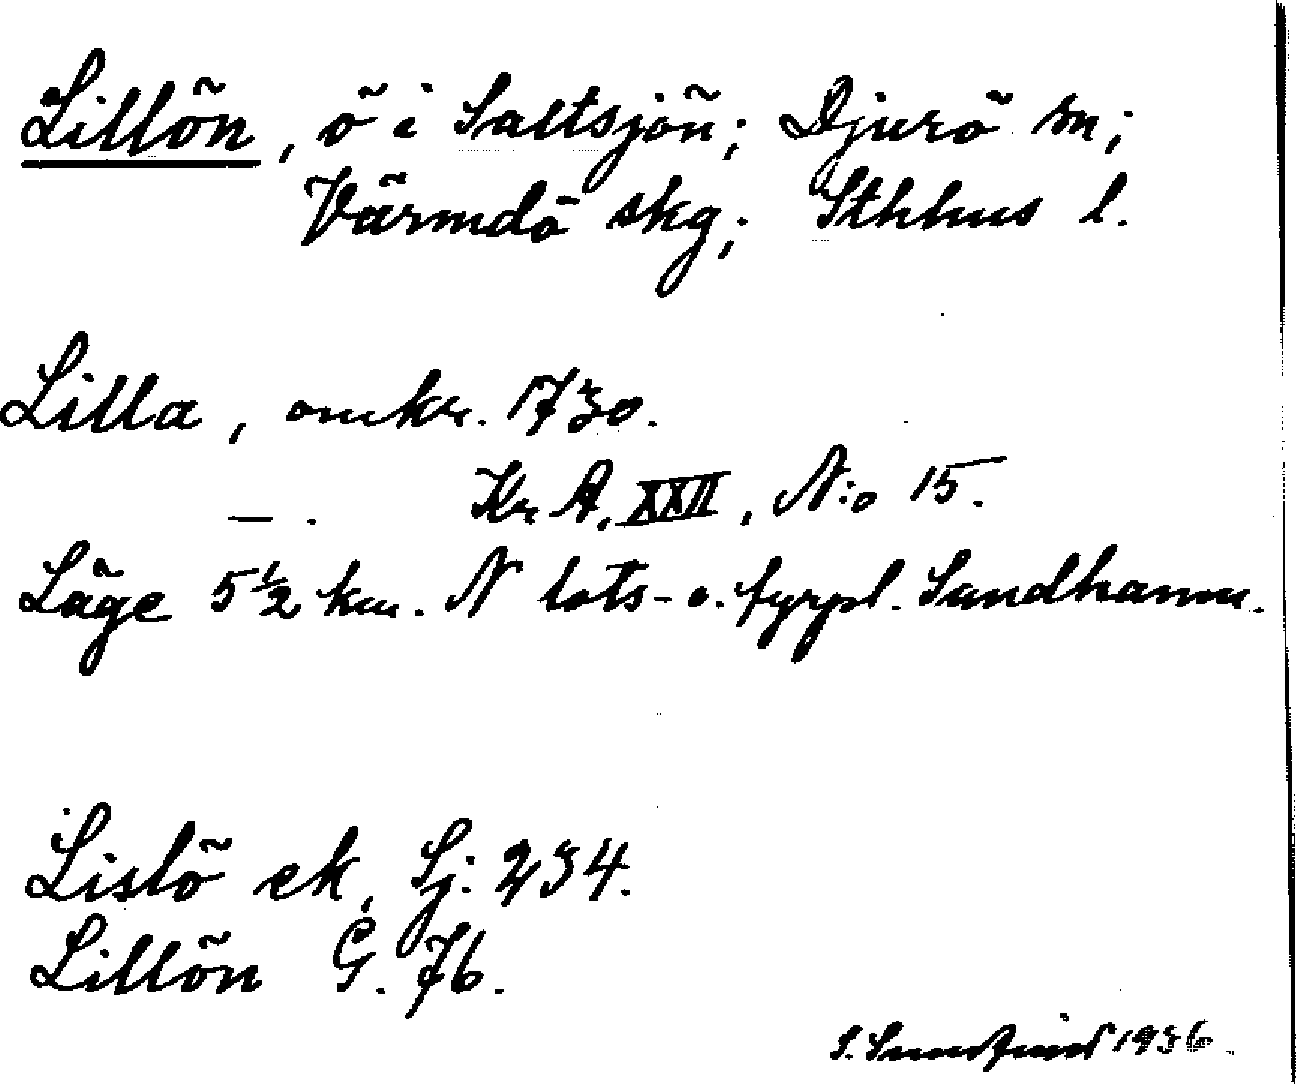 Lillön, ö i Saltsjön; Djurö sn;
Värmdö skg; Sthlms l.
Lilla, omkr. 1730.
— . Kr. A. XXII, N:o 15.
Läge 5½ km. N lots- o. fyrpl. Sandhamn.
Lislö ek, Sj. 234.
Lillön G. 76.
S. 1936.